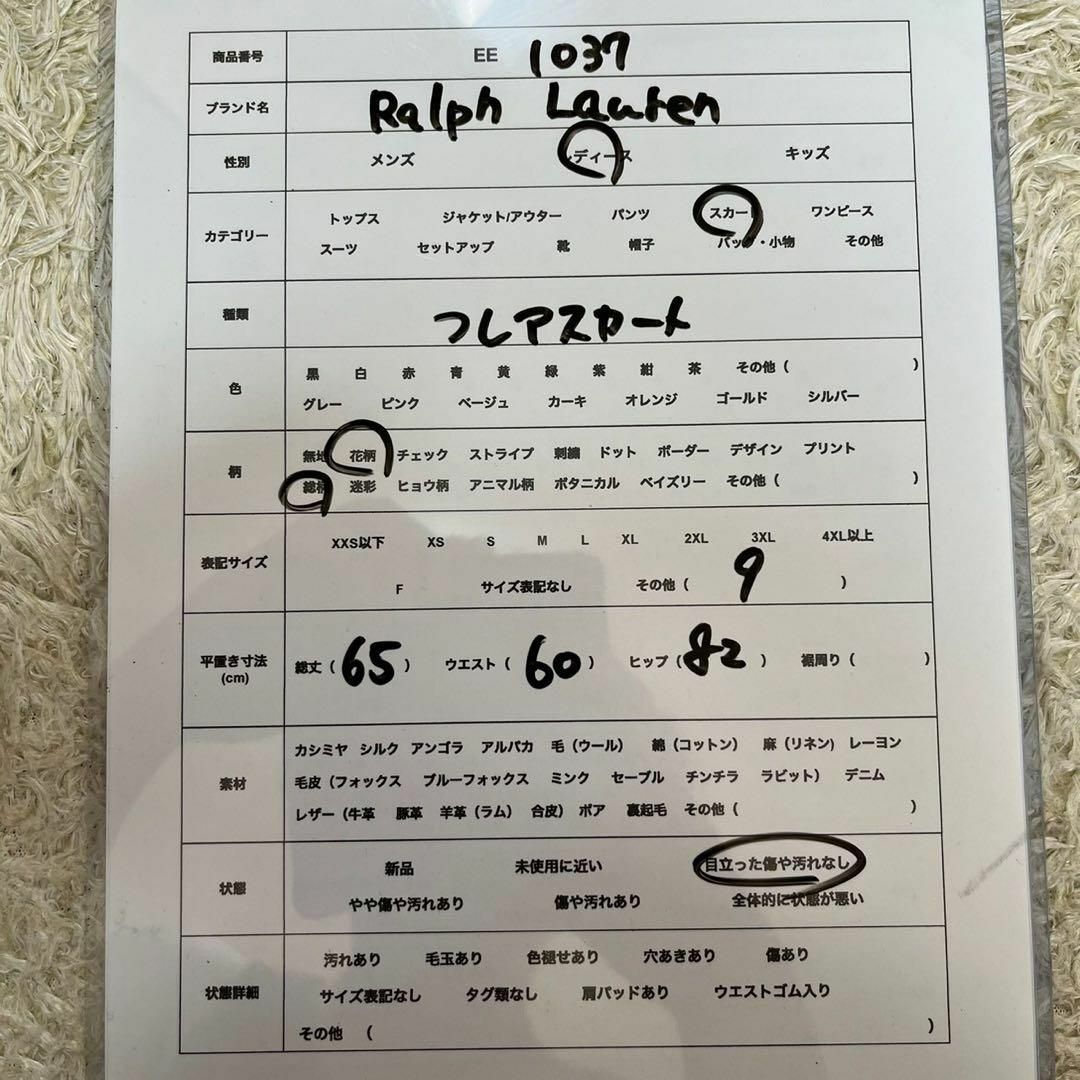 商品番号 EE 1037
ブランド名 Ralph Lauren
性別 メンズ レディース キッズ
トップス ジャケット/アウター パンツ スカート ワンピース
カテゴリー
スーツ セットアップ 靴 帽子 バッグ・小物 その他
種類 フレアスカート
黒 白 赤 青 黄 緑 紫 紺 茶 その他( )
色
グレー ピンク ベージュ カーキ オレンジ ゴールド シルバー
無地 花柄 チェック ストライプ 刺繍 ドット ボーダー デザイン プリント
柄
総柄 迷彩 ヒョウ柄 アニマル柄 ボタニカル ペイズリー その他( )
XXS以下 XS S M L XL 2XL 3XL 4XL以上
表記サイズ
F サイズ表記なし その他( 9 )
平置き寸法 総丈(65) ウエスト(60) ヒップ(82) 裾周り( )
(cm)
カシミヤ シルク アンゴラ アルパカ 毛(ウール) 綿(コットン) 麻(リネン) レーヨン
素材 毛皮(フォックス ブルーフォックス ミンク セーブル チンチラ ラビット) デニム
レザー(牛革 豚革 羊革(ラム) 合皮) ボア 裏起毛 その他( )
新品 未使用に近い 目立った傷や汚れなし
状態
やや傷や汚れあり 傷や汚れあり 全体的に状態が悪い
汚れあり 毛玉あり 色褪せあり 穴あきあり 傷あり
状態詳細 サイズ表記なし タグ類なし 肩パッドあり ウエストゴム入り
その他 ( )